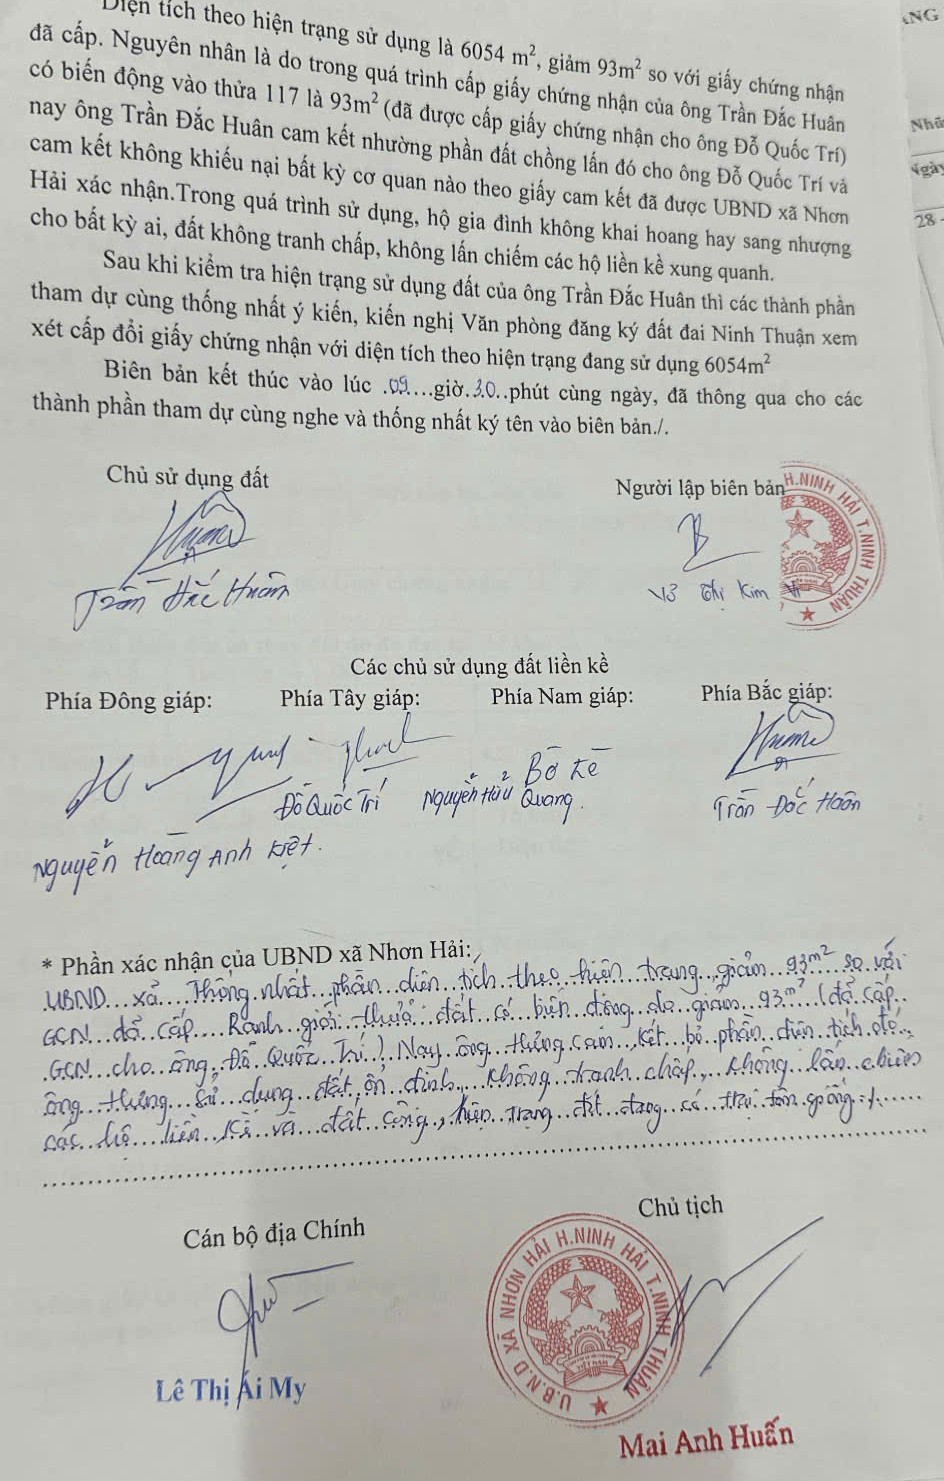 Diện tích theo hiện trạng sử dụng là 6054 m², giảm 93m² so với giấy chứng nhận
đã cấp. Nguyên nhân là do trong quá trình cấp giấy chứng nhận của ông Trần Đắc Huân
có biến động vào thửa 117 là 93m² (đã được cấp giấy chứng nhận cho ông Đỗ Quốc Trí)
nay ông Trần Đắc Huân cam kết nhường phần đất chồng lấn đó cho ông Đỗ Quốc Trí và
cam kết không khiếu nại bất kỳ cơ quan nào theo giấy cam kết đã được UBND xã Nhơn
Hải xác nhận.Trong quá trình sử dụng, hộ gia đình không khai hoang hay sang nhượng
cho bất kỳ ai, đất không tranh chấp, không lấn chiếm các hộ liền kề xung quanh.
Sau khi kiểm tra hiện trạng sử dụng đất của ông Trần Đắc Huân thì các thành phần
tham dự cùng thống nhất ý kiến, kiến nghị Văn phòng đăng ký đất đai Ninh Thuận xem
xét cấp đổi giấy chứng nhận với diện tích theo hiện trạng đang sử dụng 6054m²
Biên bản kết thúc vào lúc .09....giờ.30..phút cùng ngày, đã thông qua cho các
thành phần tham dự cùng nghe và thống nhất ký tên vào biên bản./.
Chủ sử dụng đất
Người lập biên bản
H.NINH HẢI T.NINH THUẬN
Trần Đắc Huân
Võ Thị Kim
Các chủ sử dụng đất liền kề
Phía Đông giáp: Phía Tây giáp: Phía Nam giáp: Phía Bắc giáp:
Bờ Kè
Đỗ Quốc Trí Nguyễn Hữu Quang. Trần Đắc Hoân
Nguyễn Hoàng Anh Kiệt.
* Phần xác nhận của UBND xã Nhơn Hải:
UBND xã Thống nhất phần diện tích theo hiện trạng giảm 93m² so với
GCN đã cấp. Ranh giới thửa đất có biến động do giảm 93m² (đã cấp
GCN cho ông Đỗ Quốc Trí). Nay ông cam kết bỏ phần diện tích đó,
ông sử dụng đất ổn định, không tranh chấp, không lấn chiếm
các hộ liền kề và đất công, hiện trạng đất đang có
Cán bộ địa Chính
Chủ tịch
U.B.N.D XÃ NHƠN HẢI H.NINH HẢI T.NINH THUẬN
VIỆT NAM
Lê Thị Ái My
Mai Anh Huấn
Ngày
28